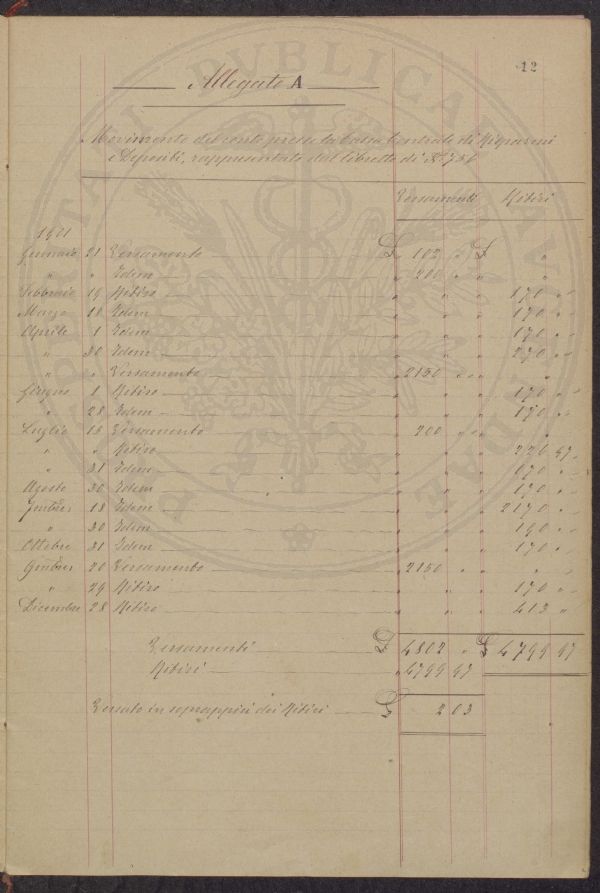 12
Allegato A
Movimento del conto presso la Cassa Centrale di Risparmi
e Depositi, rappresentato dal libretto di N° 750
Versamenti Ritiri
1921
Gennaio 21 Versamento £ 102 " £ "
" " Idem " 200 " " "
Febbraio 19 Ritiro " " " 170 " "
Marzo 18 Idem " " " 170 " "
Aprile 1 Idem " " " 170 " "
" 30 Idem " " " 270 " "
" " Versamento " 2150 " " "
Giugno 1 Ritiro " " " 170 " "
" 28 Idem " " " 170 " "
Luglio 13 Versamento " 200 " " "
" " Ritiro " " " 220 97
" 31 Idem " " " 670 " "
Agosto 30 Idem " " " 170 " "
18 Idem " " " 2170 " "
" 30 Idem " " " 190 " "
Ottobre 31 Idem " " " 170 " "
20 Versamento " 2150 " " "
" 29 Ritiro " " " 170 " "
Dicembre 28 Ritiro " " " 413 "
Versamenti £ 4802 " £ 4799 97
Ritiri " 4799 97
Versato in soprappiù dei Ritiri £ 2 03
PVBLICAE